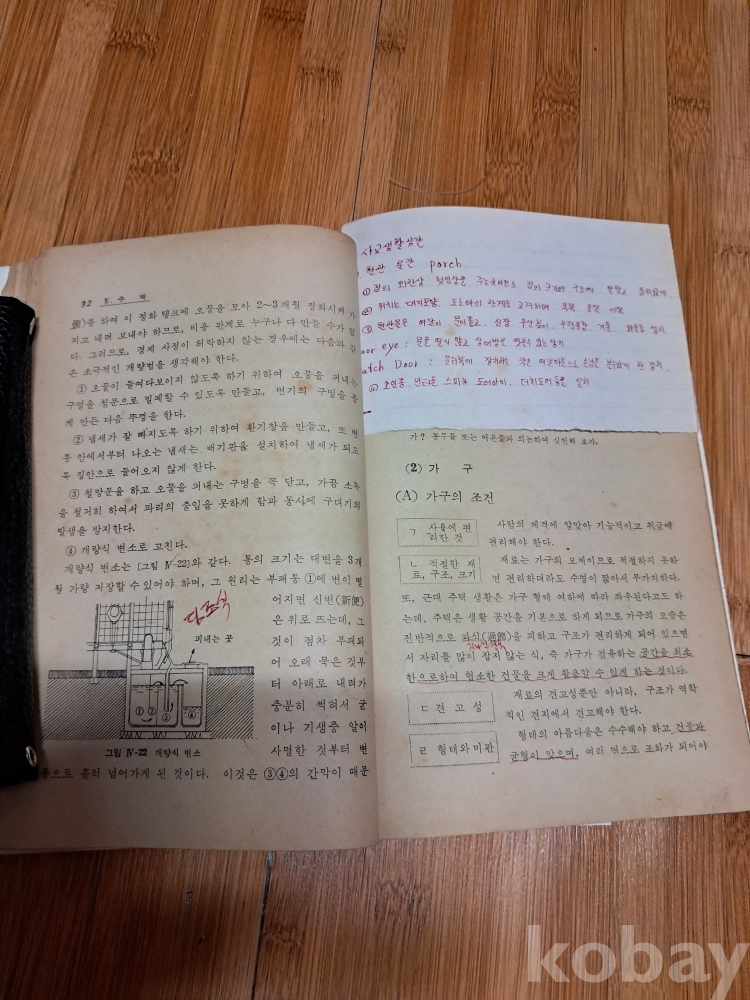 92 Ⅳ. 주 택
를 통하여 이 정화 탱크에 오물을 모아 2~3개월 정화시켜 가
지고 내려 보내야 하므로, 비용 관계로 누구나 다 만들 수가 없
다. 그러므로, 경제 사정이 허락하지 않는 경우에는 다음과 같
은 소극적인 개량법을 생각해야 한다.
① 오물이 들여다보이지 않도록 하기 위하여 오물을 퍼내는
구멍을 철문으로 밀폐할 수 있도록 만들고, 변기의 구멍을 좁
게 만든 다음 뚜껑을 한다.
② 냄새가 잘 빠지도록 하기 위하여 환기창을 만들고, 또 변
통 안에서부터 나오는 냄새는 배기관을 설치하여 냄새가 되도
록 집안으로 들어오지 않게 한다.
③ 철망문을 하고 오물을 퍼내는 구멍을 꼭 닫고, 가끔 소독
을 철저히 하여서 파리의 출입을 못하게 함과 동시에 구더기의
발생을 방지한다.
④ 개량식 변소로 고친다.
개량식 변소는 [그림 Ⅳ-22]와 같다. 통의 크기는 대변을 3개
월 가량 저장할 수 있어야 하며, 그 원리는 부패통 ①에 변이 떨
어지면 신변(新便)
은 위로 뜨는데, 그
것이 점차 부패되
어 오래 묵은 것부
터 아래로 내려가
충분히 썩혀서 균
이나 기생충 알이
사멸한 것부터 변
퍼내는 곳
① ② ③ ④
그림 Ⅳ-22 개량식 변소
통으로 흘러 넘어가게 된 것이다. 이것은 ③④의 간막이 때문
사교생활공간
현관 문간 porch
①집의 외관상 첫인상을 주는곳이므로
② 위치는 대지모양, 도로와의 관계를 고려하며
③ 현관문은
eye : 문은 열지 않고
Door :
가? 동무들 또는 어른들과 의논하여 실천해 보자.
(2) 가 구
(A) 가구의 조건
ㄱ 사용에 편
리한 것
사람의 체격에 알맞아 기능적이고 취급에
편리해야 한다.
ㄴ 적절한 재
료, 구조, 크기
재료는 가구의 모체이므로 적절하지 못하
면 편리하더라도 수명이 짧아서 무가치하다.
또, 근대 주택 생활은 가구 형태 여하에 따라 좌우된다고도 하
는데, 주택은 생활 공간을 기본으로 하게 되므로 가구의 모습은
전반적으로 과식(過飾)을 피하고 구조가 편리하게 되어 있으면
서 자리를 많이 잡지 않는 식, 즉 가구가 점유하는 공간을 최소
한으로하여 협소한 건물을 크게 활용할 수 있게 하는 것이다.
ㄷ 견 고 성
재료의 견고성뿐만 아니라, 구조가 역학
적인 견지에서 견고해야 한다.
ㄹ 형태와 미관
형태의 아름다움은 수수해야 하고 건물과
균형이 맞으며, 여러 면으로 조화가 되어야
kobay